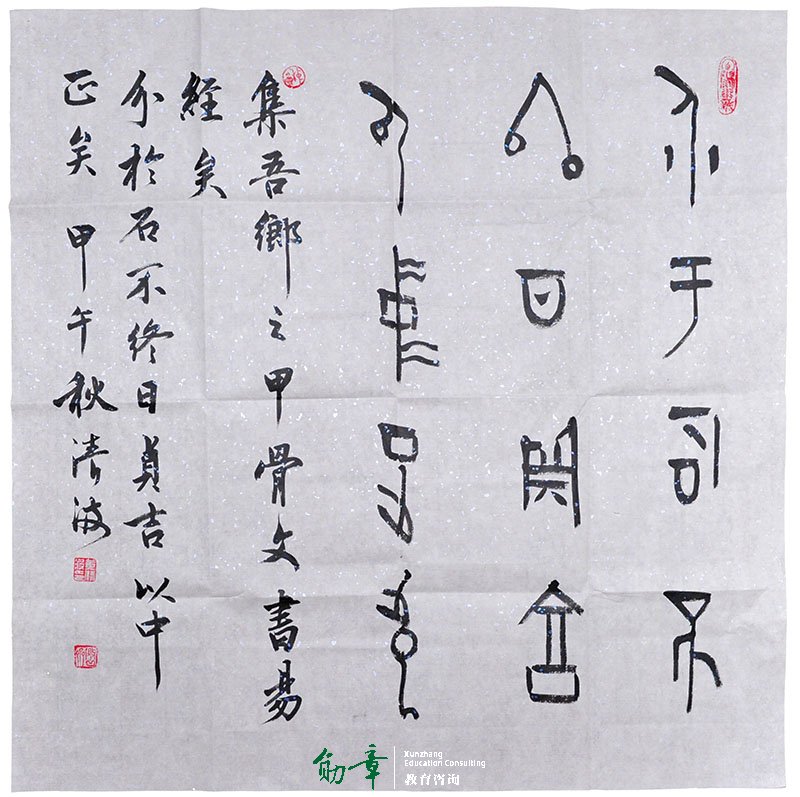 介于石不
終日貞吉
以中正也
集吾鄉之甲骨文書易
經矣
介於石不終日貞吉以中
正矣 甲午秋
勛章
Xunzhang
Education Consulting
教育咨询